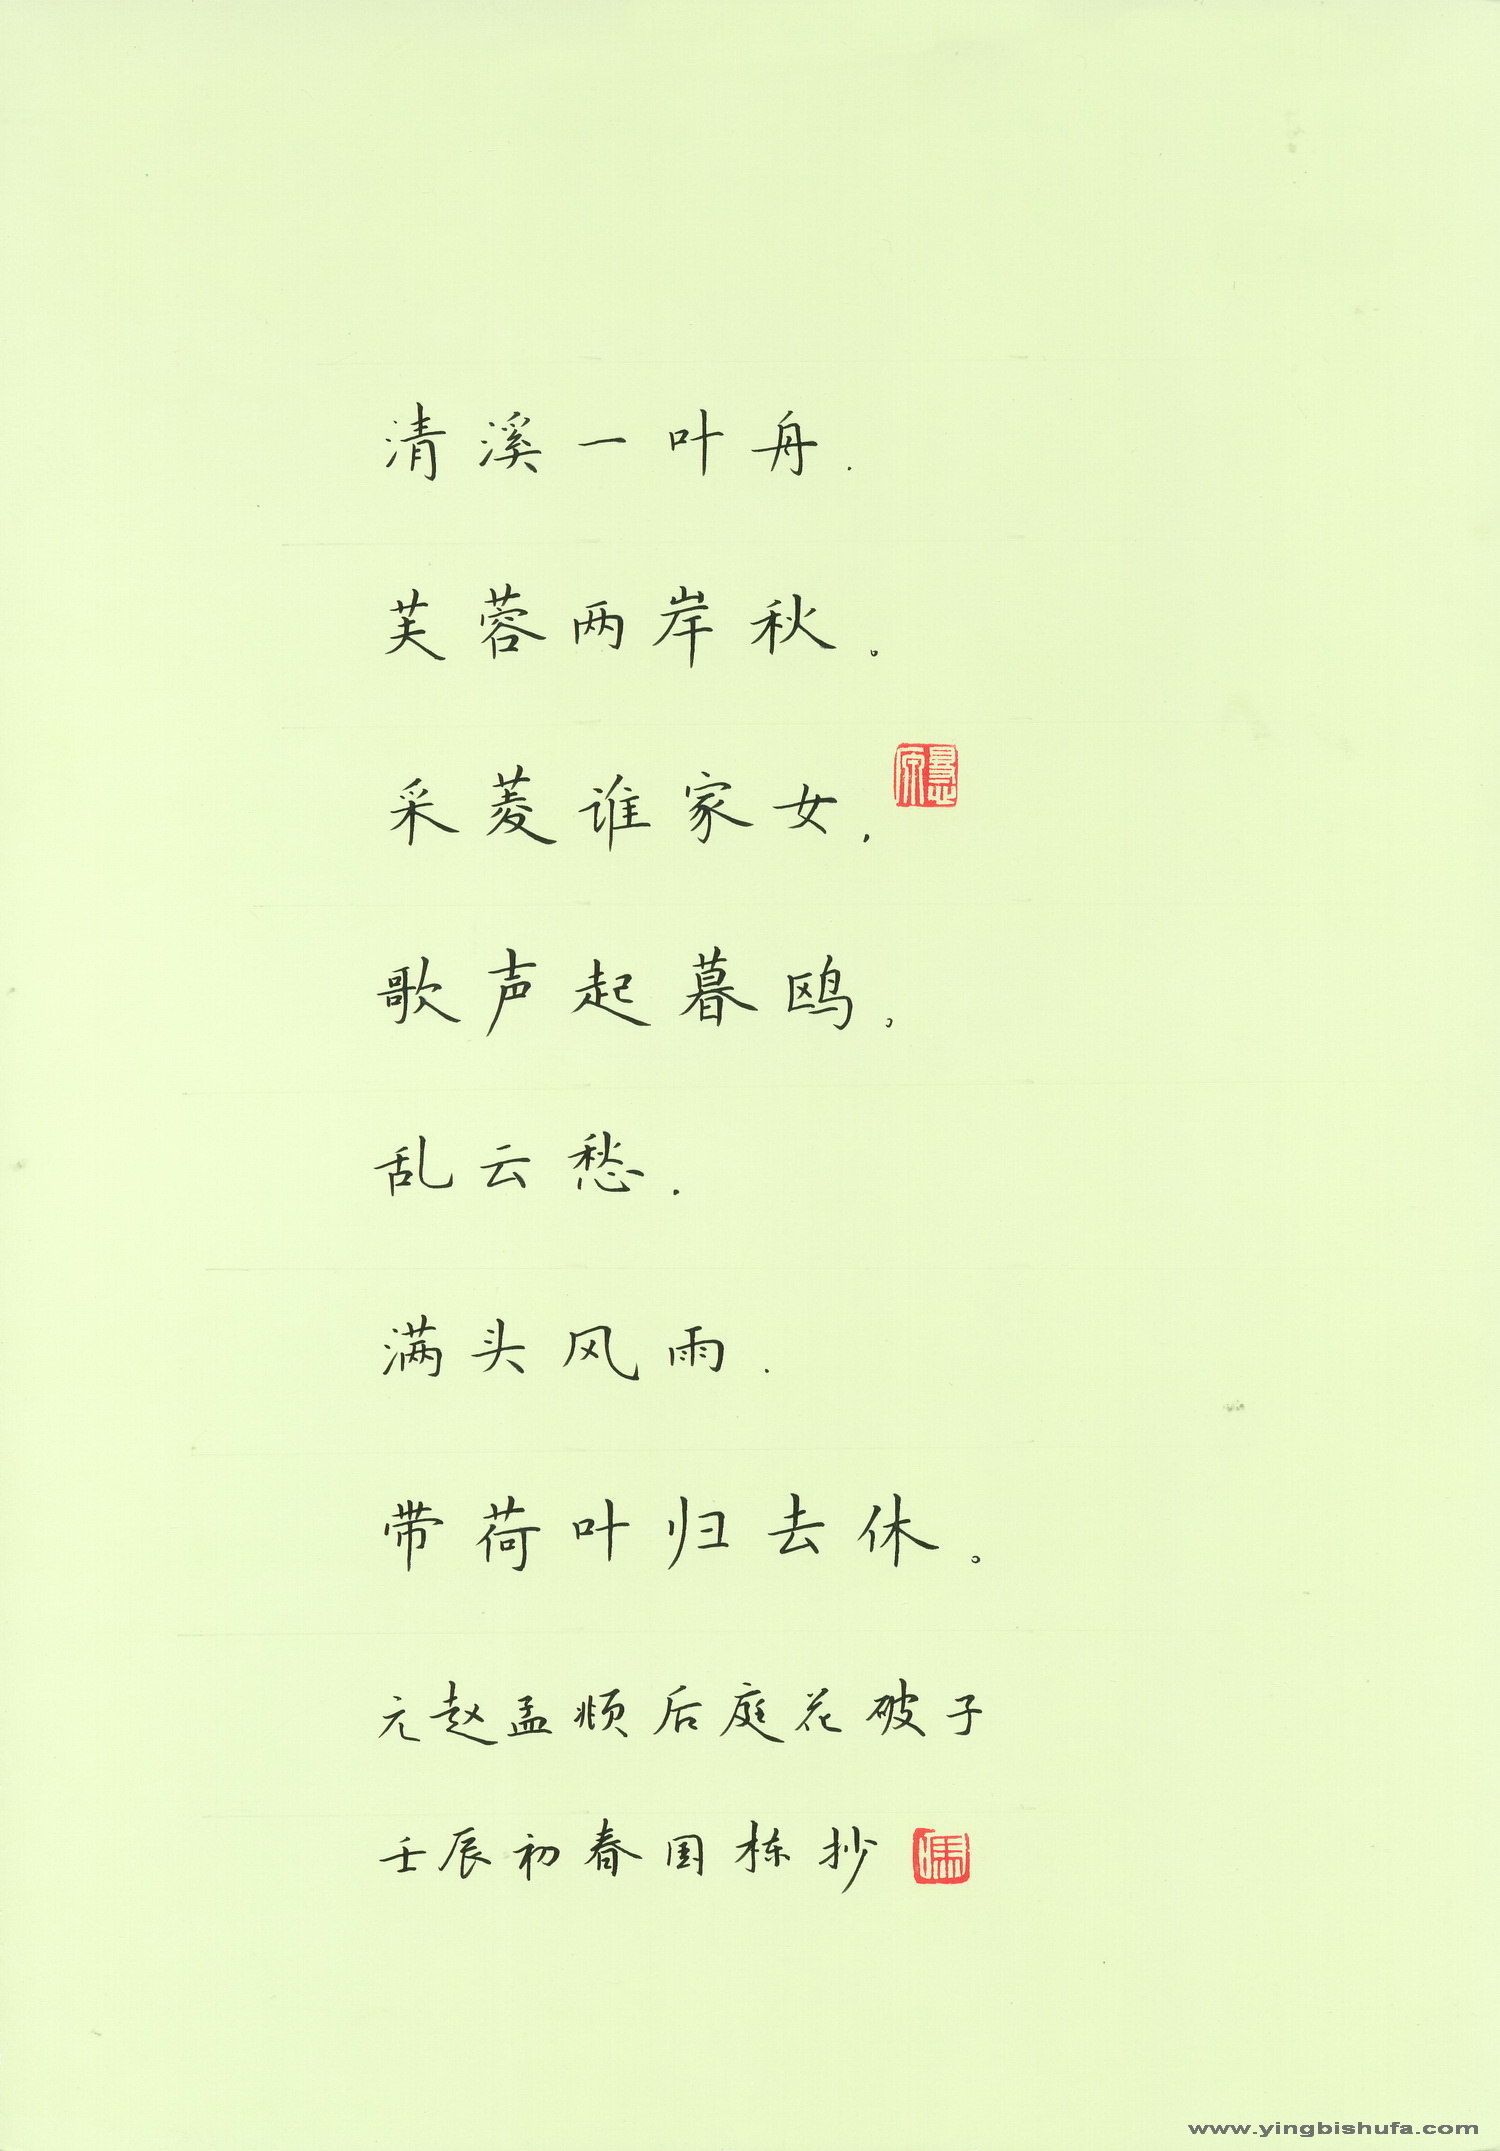 清溪一叶舟.
芙蓉两岸秋。
采菱谁家女,
歌声起暮鸥。
乱云愁.
满头风雨.
带荷叶归去休。
元赵孟頫后庭花破子
壬辰初春国栋抄
冯
www.yingbishufa.com